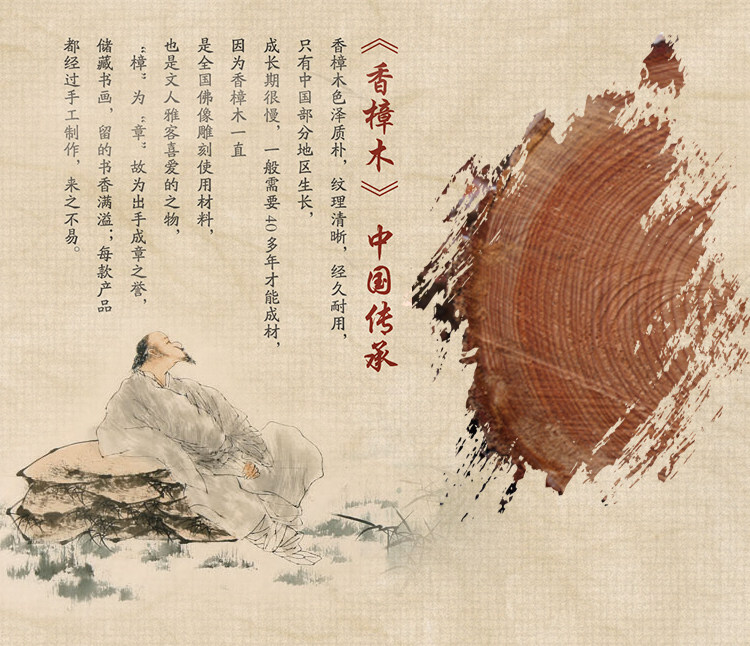 《香樟木》中国传承
香樟木色泽质朴，纹理清晰，经久耐用，
只有中国部分地区生长，
成长期很慢，一般需要40多年才能成材，
因为香樟木一直
是全国佛像雕刻使用材料，
也是文人雅客喜爱的之物，
“樟”为“章”故为出手成章之誉，
储藏书画，留的书香满溢；每款产品
都经过手工制作，来之不易。